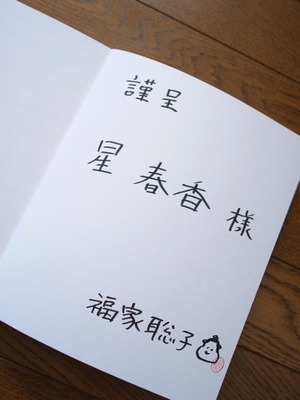 謹呈
星 春香 様
福家聡子